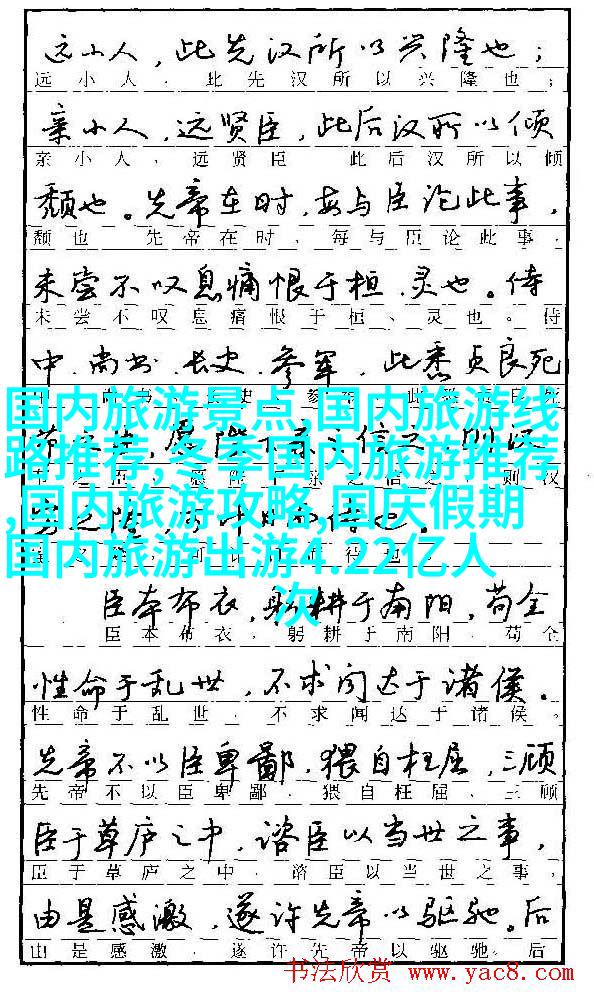 远小人，此先汉所以兴隆也；
远小人，此先汉所以兴隆也；
亲小人，远贤臣，此后汉所以倾
亲小人，远贤臣 此后汉所以倾
颓也。先帝在时，每与臣论此事，
颓也 先帝在时，每与臣论此事，
未尝不叹息痛恨于桓、灵也。侍
未尝不叹息痛恨于桓、灵也。侍
中、尚书、长史、参军，此悉贞良死
国内旅游景点,国内旅游线
路推荐,冬季国内旅游推荐
,国内旅游攻略,国庆假期
国内旅游出游4.22亿人
次
臣本布衣，躬耕于南阳，苟全
臣本布衣，躬耕于南阳，苟全
性命于乱世，不求闻达于诸侯。
性命于乱世，不求闻达于诸侯。
先帝不以臣卑鄙，猥自枉屈，三顾
先帝不以臣卑鄙，猥自枉屈、三顾
臣于草庐之中，谘臣以当世之事，
臣于草庐之中，谘臣以当世之事，
由是感激，遂许先帝以驱驰。后
由是感激，遂许先帝以驱驰。后
书法欣赏 www.yac8.com